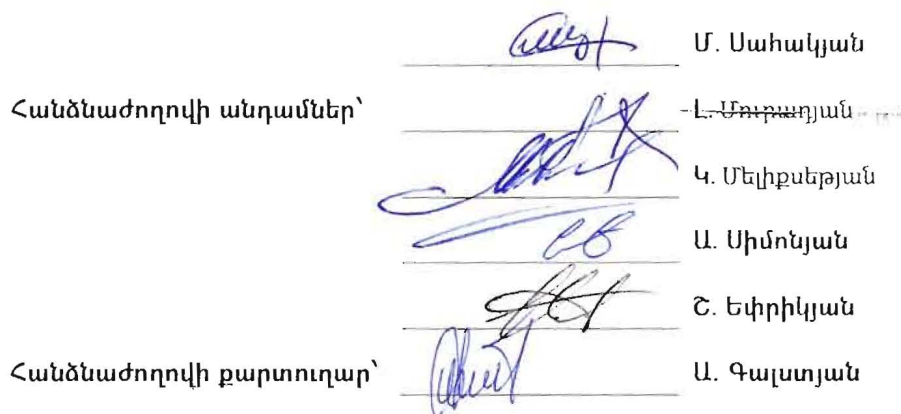 Մ. Սահակյան
Հանձնաժողովի անդամներ՝
Լ. Մուրադյան
Կ. Մելիքսեթյան
Ա. Սիմոնյան
Շ. Եփրիկյան
Հանձնաժողովի քարտուղար՝ Ա. Գալստյան